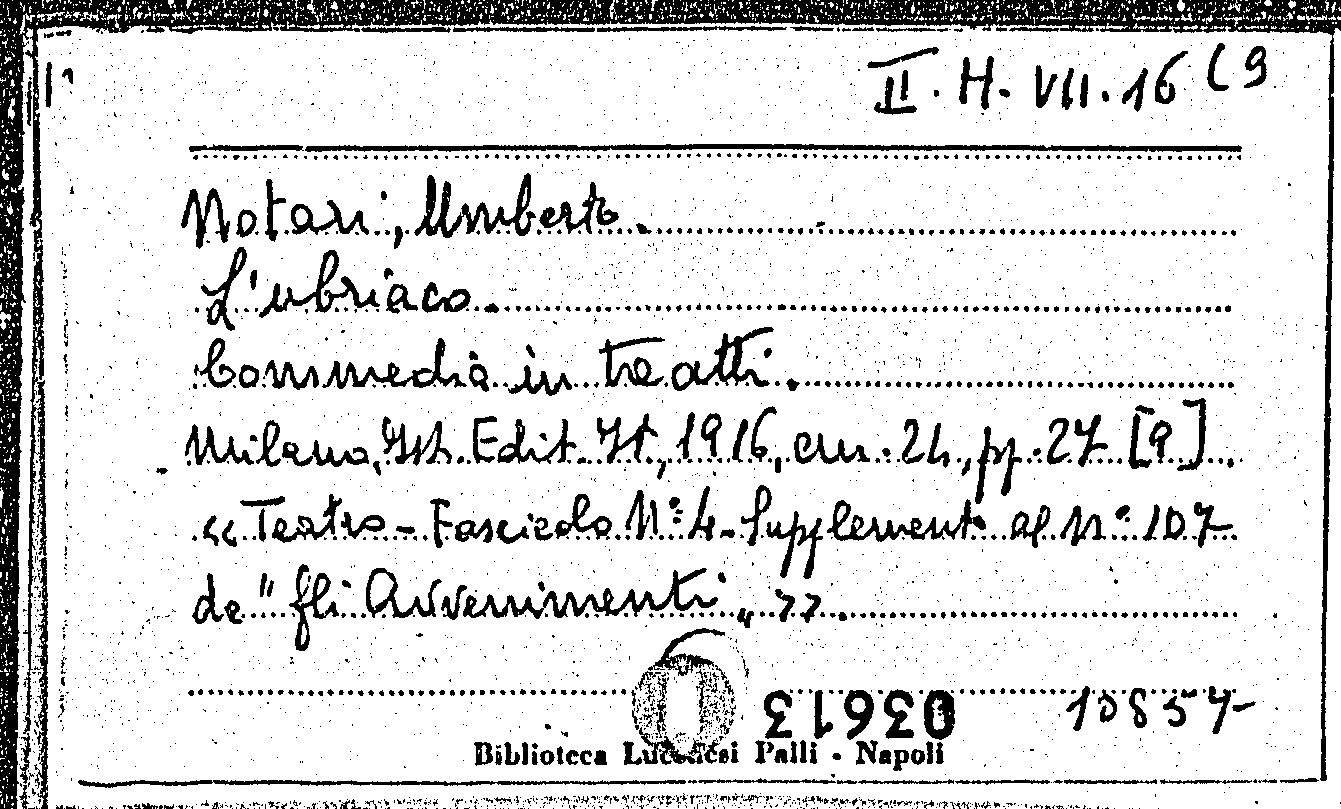 II. H. VII. 16 (9
Notari, Umberto.
L'ubriaco.
Commedia in tre atti.
Milano, Ist. Edit. It., 1916, cm. 24, pp. 27 [9].
«Teatro - Fascicolo N° 4 - Supplemento al N° 107
de "Gli Avvenimenti„ >>.
03613 10857
Biblioteca Lucchesi Palli - Napoli